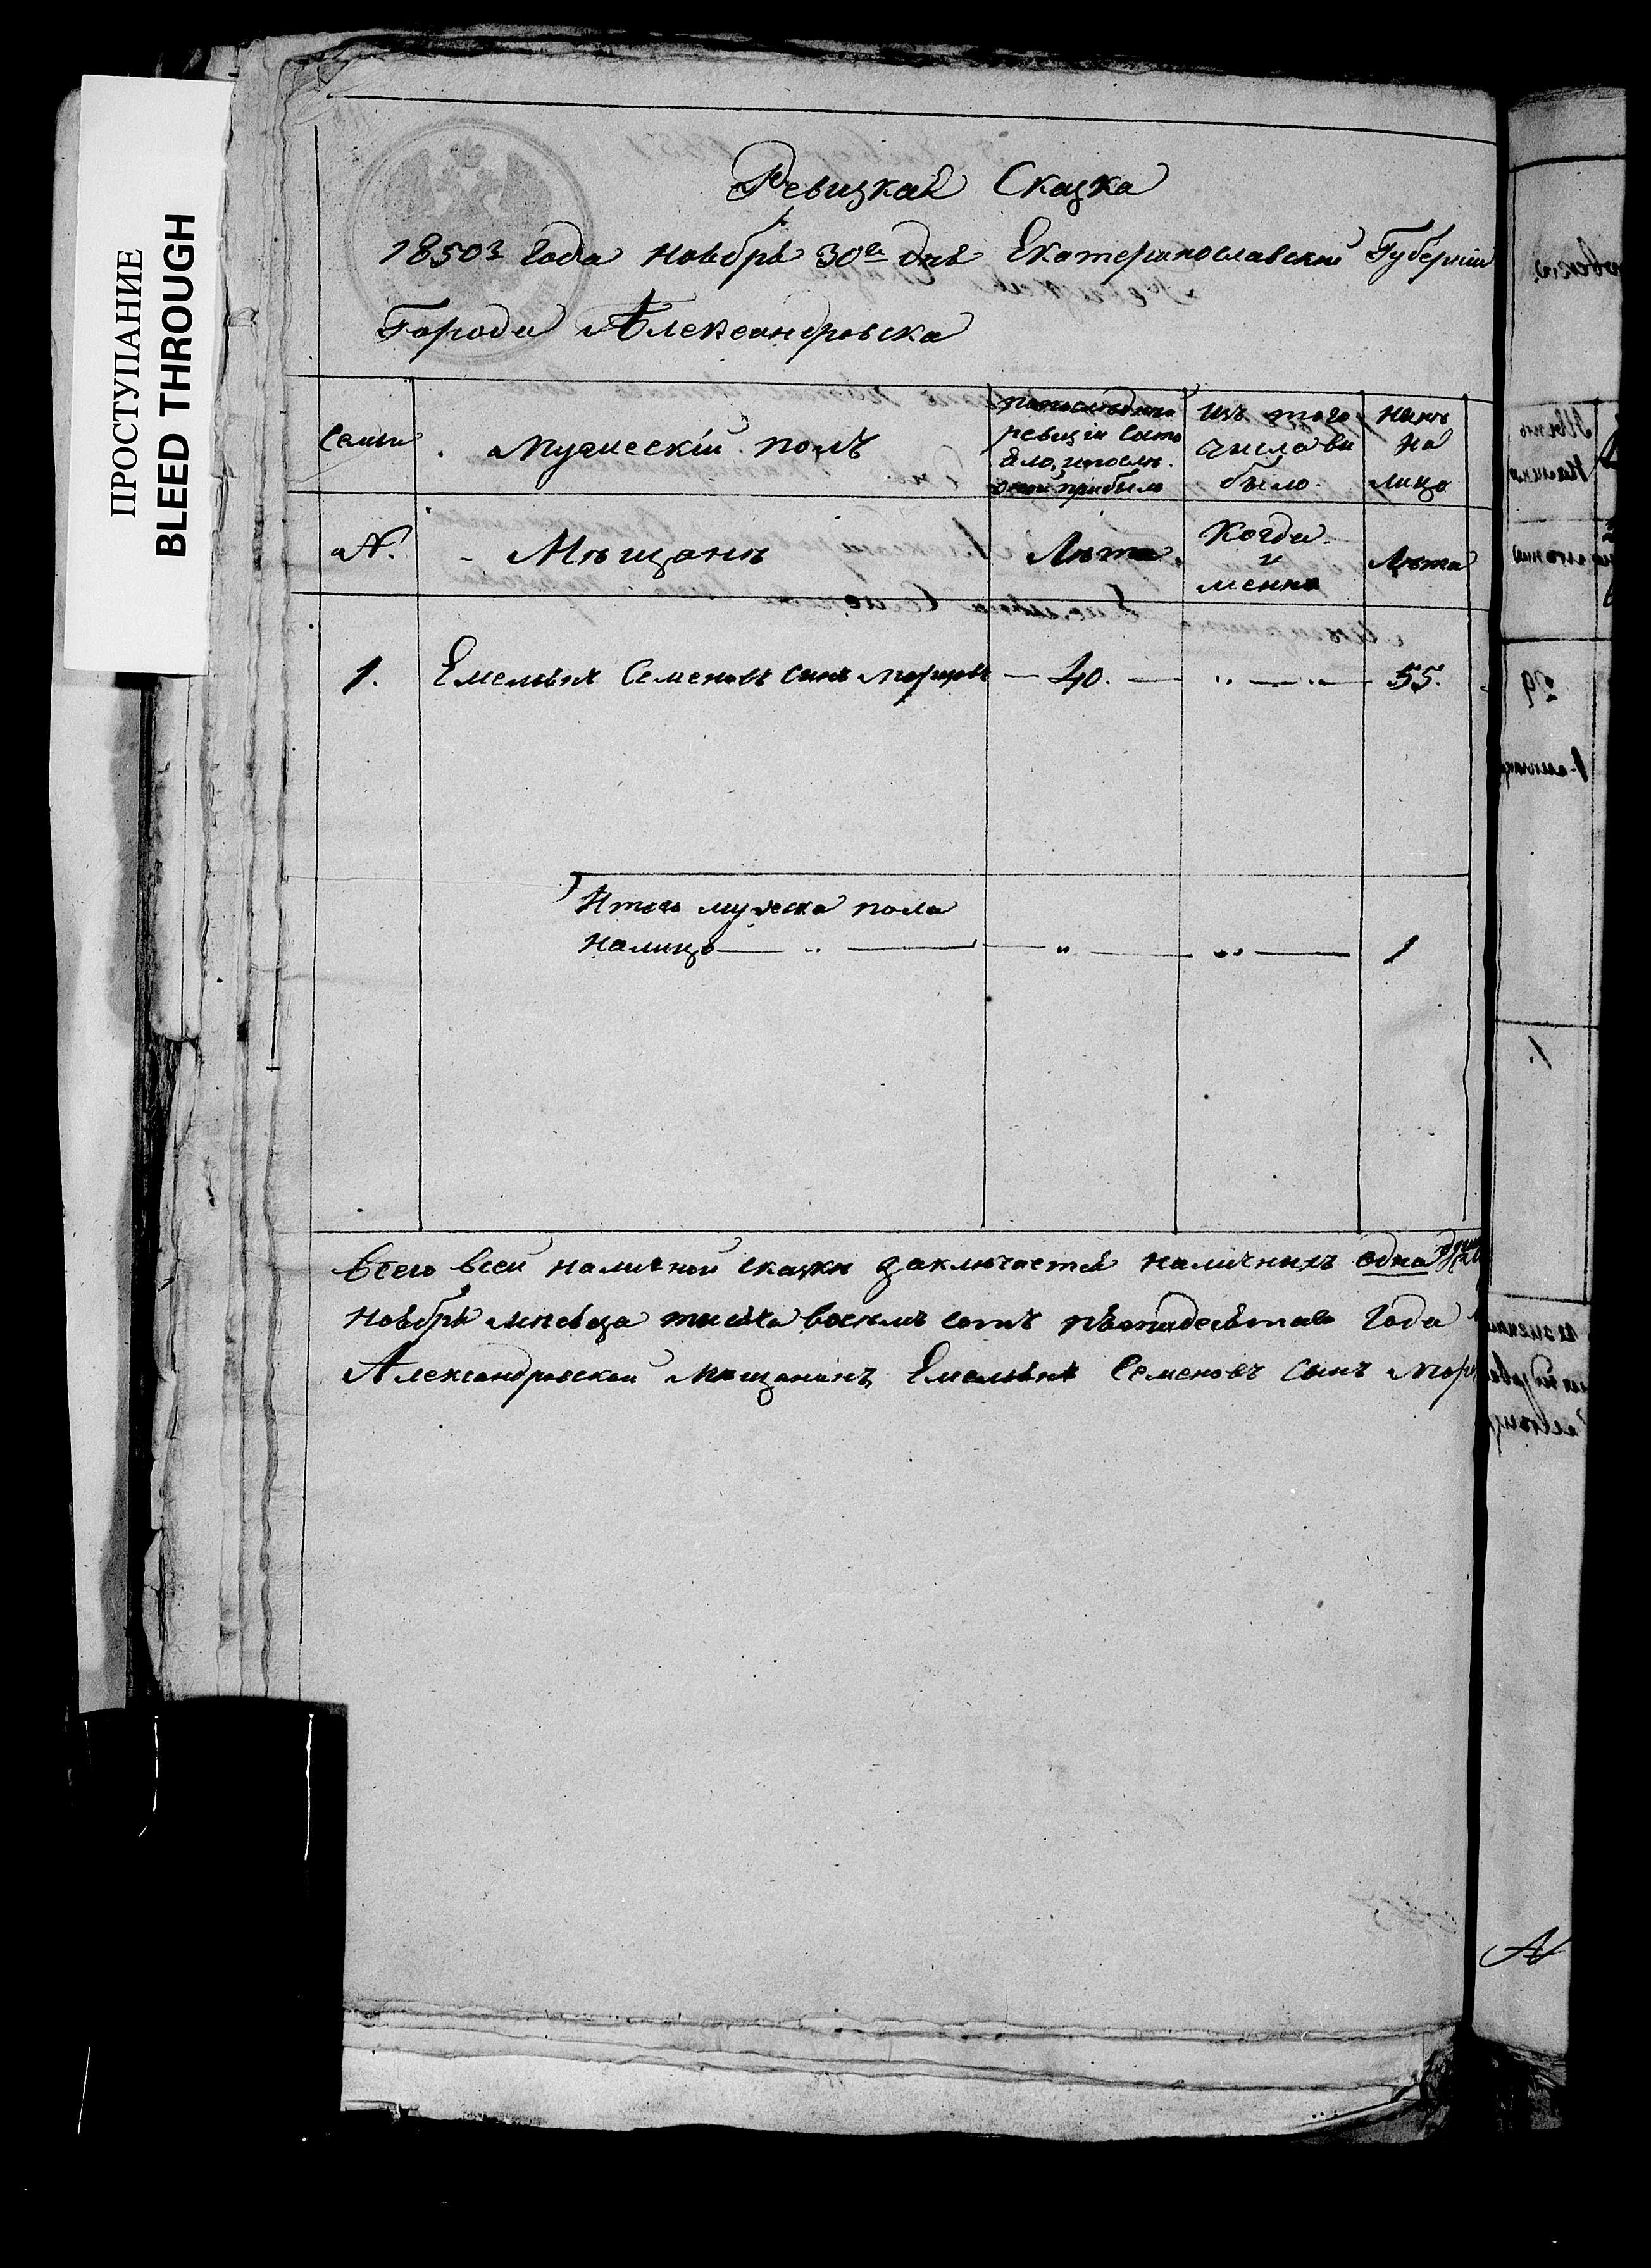 ПРОСТУПАНИЕ
BLEED THROUGH
Ревизкая Сказка
1850го Года Ноября 30го дня Екатеринославской Губернии
Города Александровска
Семьи
мужескiй полъ
попоследней
ревизiи состо
яло, и после
оной прибыло
изъ того
числа ви
было.
Нынѣ
на
лицо
№.
Мѣщанѣ
Лѣта.
Когда
и
менно
Лѣта
1.
Емельянъ Семеновъ синъ
40.
55.
Итого мужеска пола
Налицо
1
Всего всей наличной сказки заключается наличныхъ одна
Ноября мѣсяца тисяча восемъ сотъ пятидесятаго Года
Александровской мѣщанинъ Емельянъ Семеновъ Сынъ